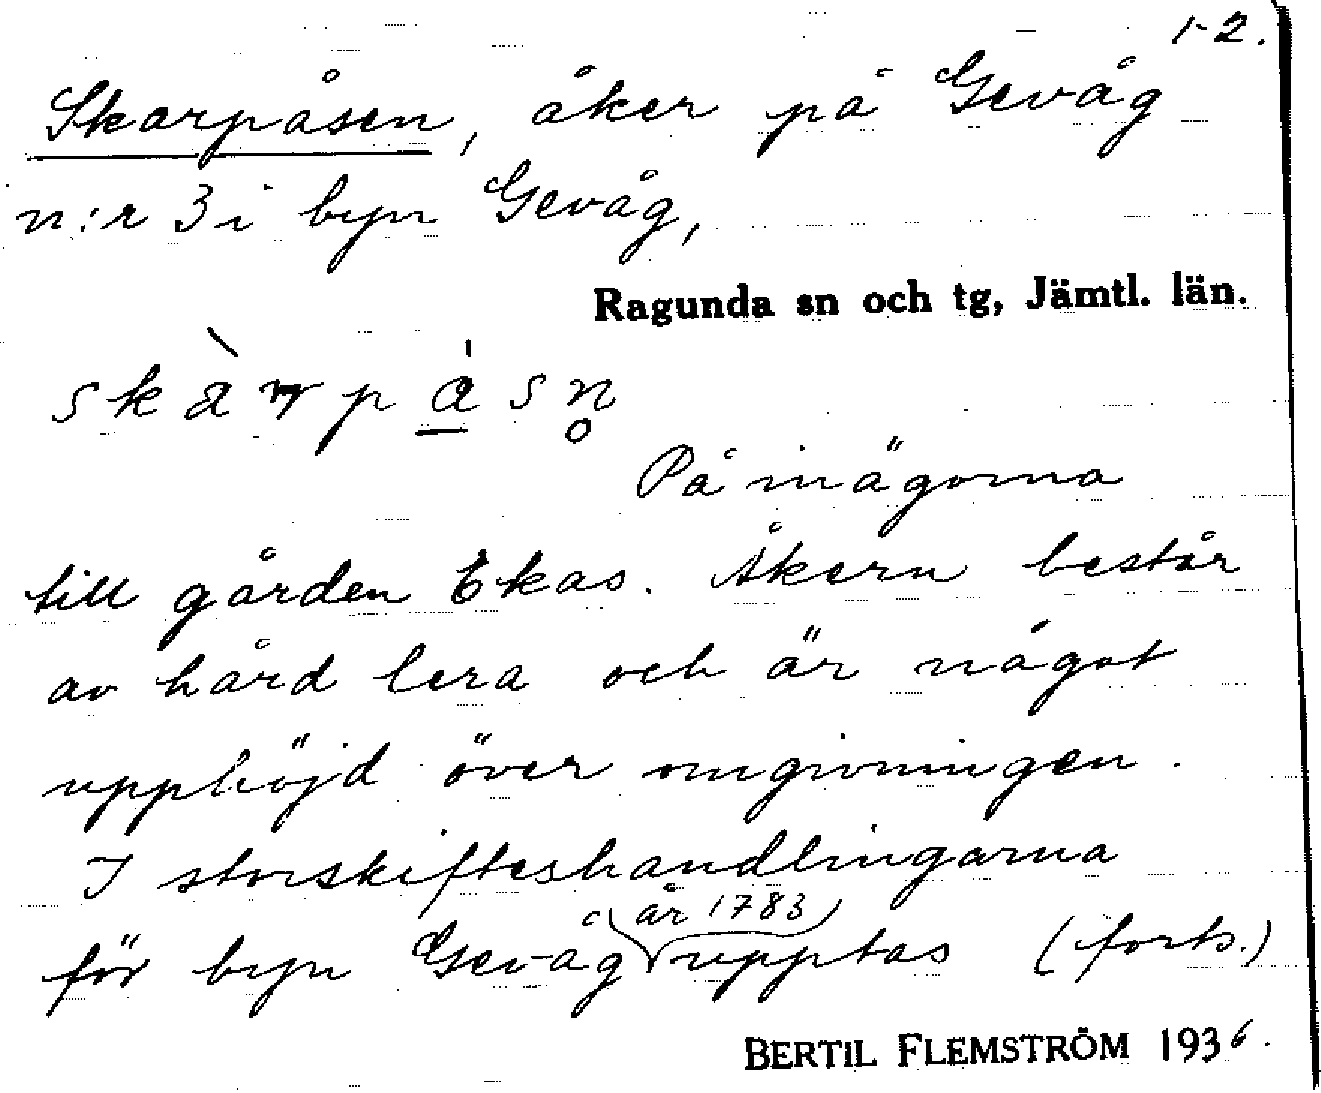 1-2.
Skarpåsen, åker på Gevåg
n:r 3 i byn Gevåg,
Ragunda sn och tg, Jämtl. län.
På inägorna
till gården Ekas. Åkern består
av hård lera och är något
upphöjd över omgivningen.
I storskifteshandlingarna
för byn Gevåg år 1783 upptas (forts.)
BERTIL FLEMSTRÖM 1936.